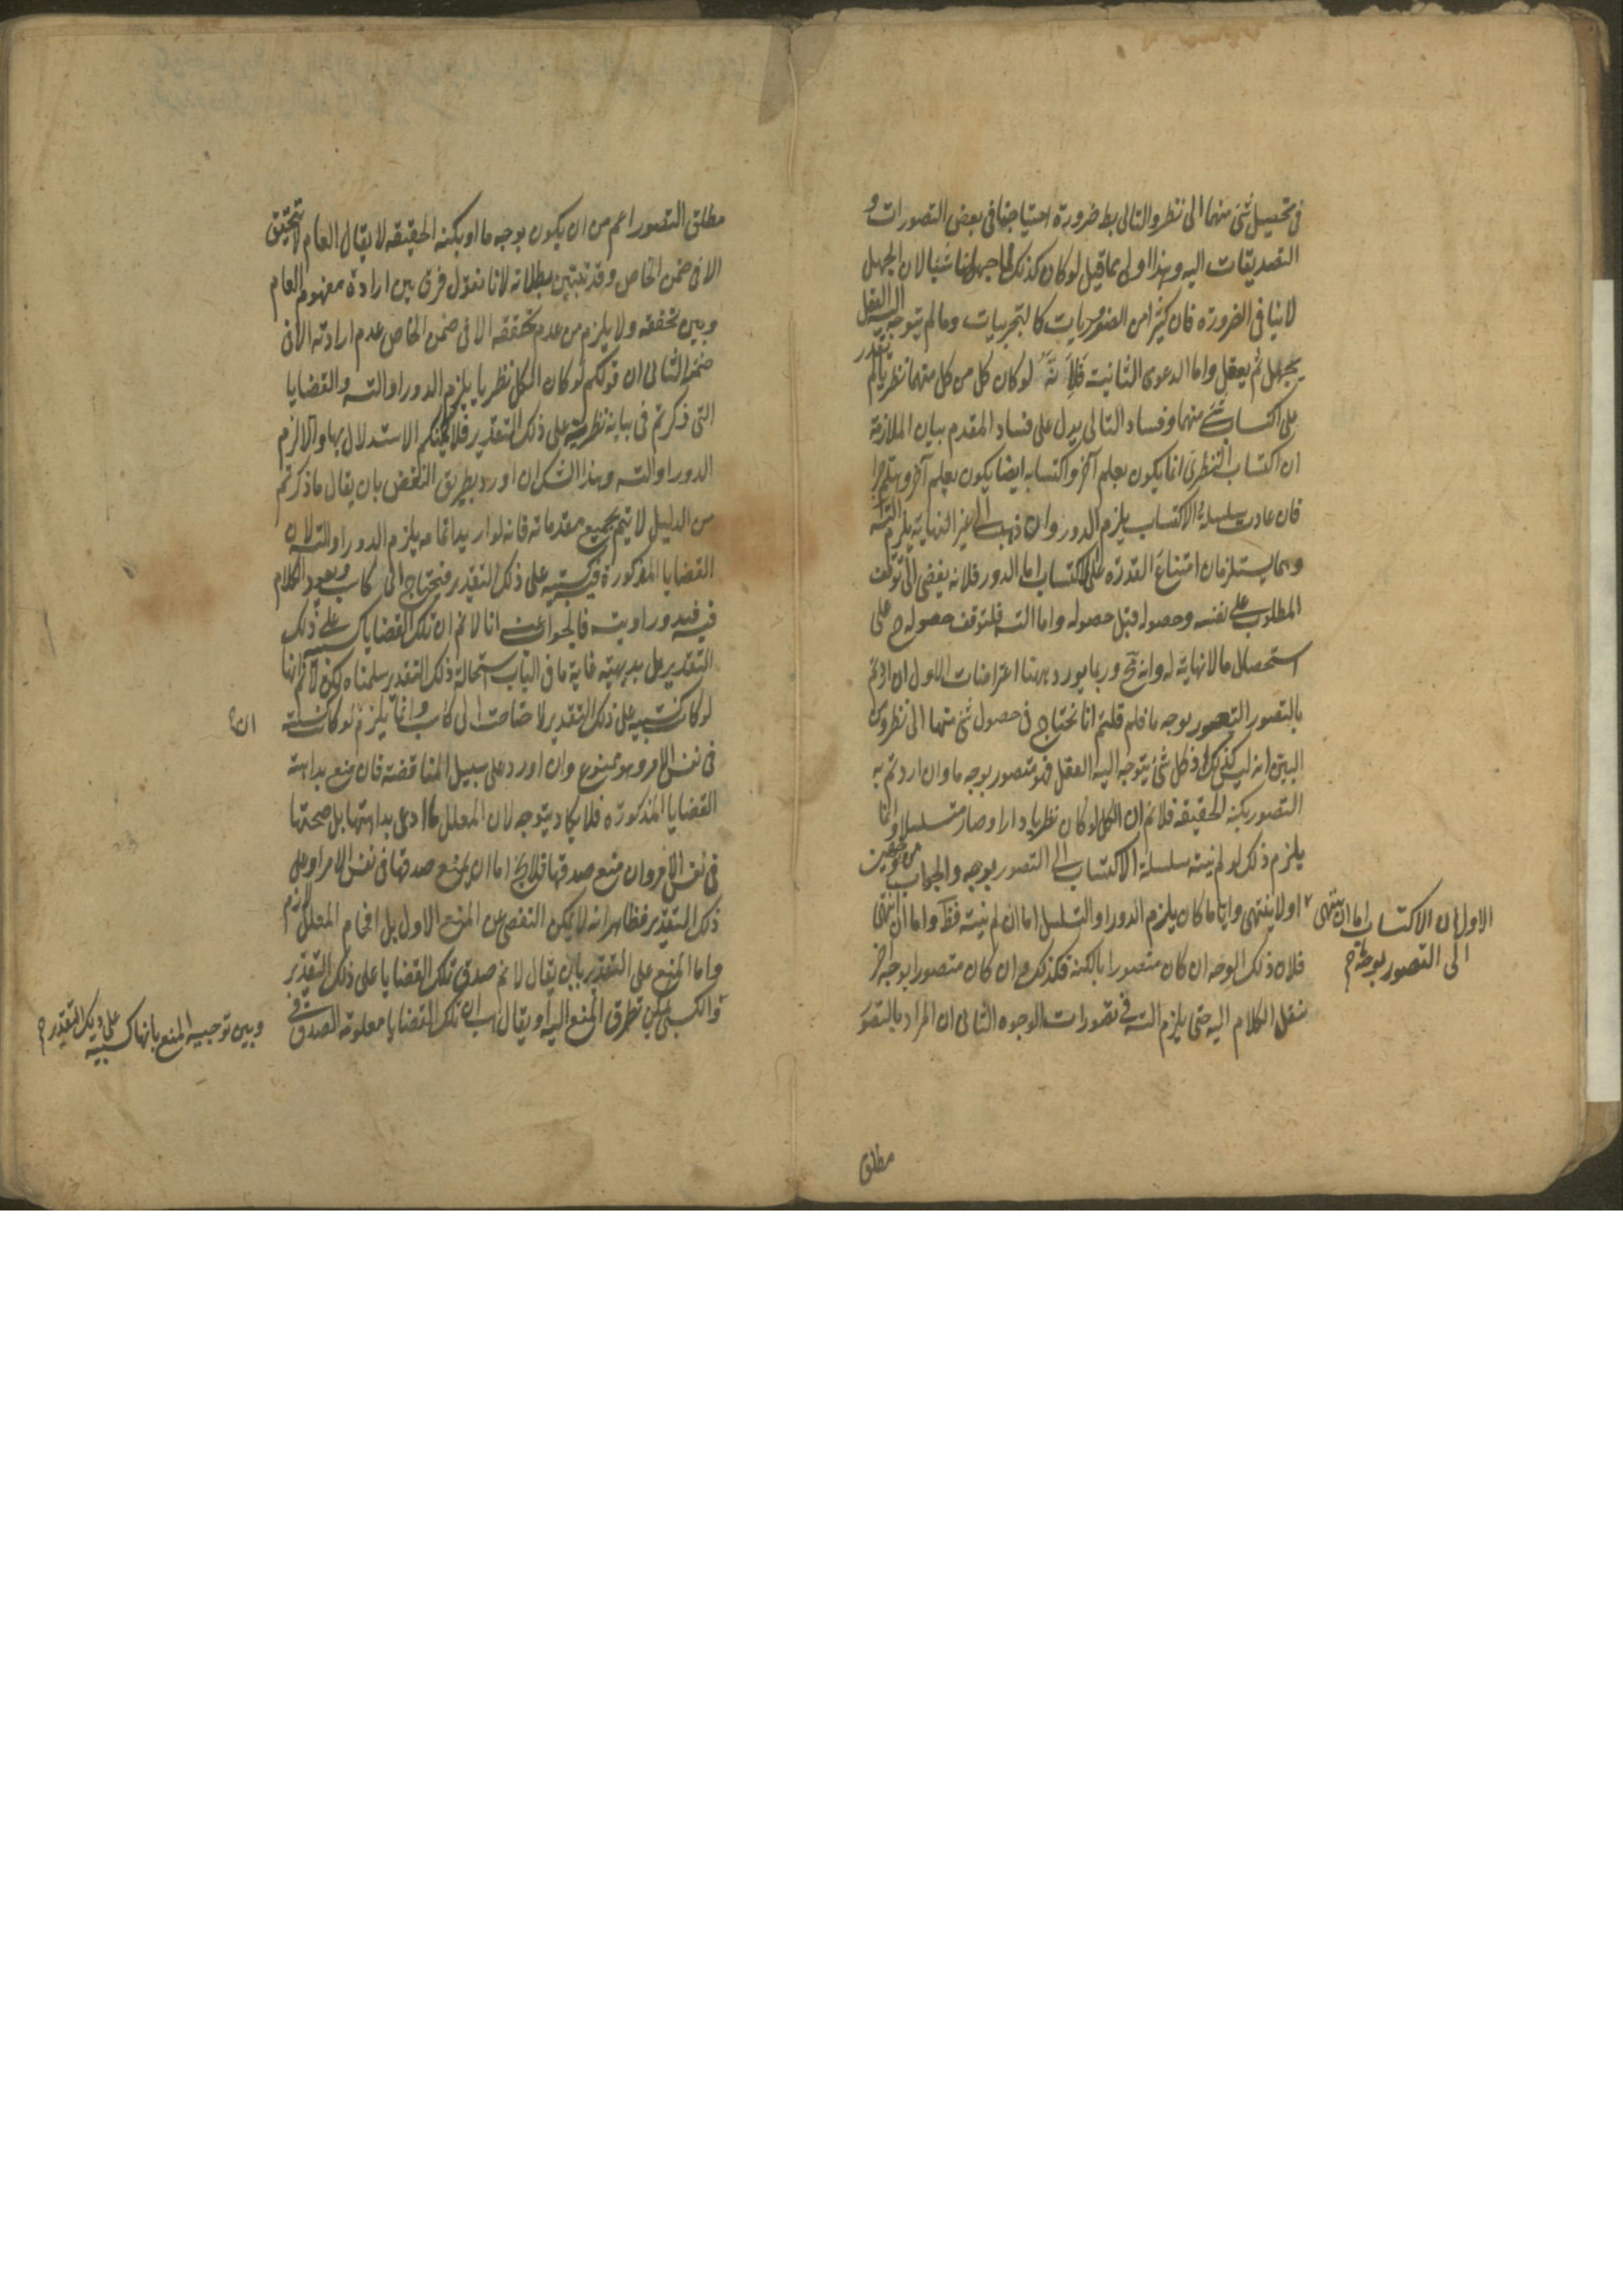 في تحصيل شئ منهما الى نظر والتالى بط ضرورة احتياجنا فى بعض التصورات و
التصديقات اليه وهذا اولى مما قيل لو كان كذلك لما جهلنا شيئا لان الجهل
لا ينافى الضرورة فان كثيرا من الضروريات كالتجربيات وما لم يتوجه اليه العقل
يجهل ثم يعقل واما الدعوى الثانية فلانه لو كان كل من كل منهما نظريا لم نقدر
على اكتساب شئ منهما وفساد التالى يدل على فساد المقدم بيان الملازمة
ان اكتساب النظرى انما يكون بعلم آخر واكتسابه ايضا يكون بعلم آخر وهلم جرا
فان عادت سلسلة الاكتساب يلزم الدور وان ذهب الى غير النهاية يلزم التسـ
وهما يستلزمان امتناع القدرة على الاكتساب اما الدور فلانه يفضى الى توقف
المطلوب على نفسه وحصوله قبل حصوله واما التسـ فلتوقف حصوله ح على
استحصال ما لا نهاية له وانه مح وربما يورد ههنا اعتراضات الاول ان اردتم
بالتصور التصور بوجه ما فلم قلتم انا نحتاج فى حصول شئ منهما الى نظر ومن
البين انه ليس كذلك اذ كل شئ يتوجه اليه العقل فهو متصور بوجه ما وان اردتم به
التصور بكنه الحقيقه فلانم ان الكل لو كان نظريا دار او صار متسلسلا وانما
يلزم ذلك لو لم ينته سلسلة الاكتساب الى التصور بوجه والجواب من وجهين
الاول ان الاكتساب اما ان ينتهى
الى التصور بوجه ما
او لا ينتهى وايا ما كان يلزم الدور او التسلسل اما ان لم ينته فظ واما ان ينتهى
فلان ذلك الوجه ان كان متصورا بالكنه فكذلك وان كان متصورا بوجه آخر
ننقل الكلام اليه حتى يلزم التسـ فى تصورات الوجوه الثانى ان المراد بالتصور
مطلق
مطلق التصور اعم من ان يكون بوجه ما او بكنه الحقيقه لا يقال العام لا يتحقق
الا فى ضمن الخاص وقد تبين بطلانه لانا نقول فرق بين ارادة مفهوم العام
وبين تحققه ولا يلزم من عدم تحققه الا فى ضمن الخاص عدم ارادته الا فى
ضمنه الثانى ان قولكم لو كان الكل نظريا يلزم الدور او التسـ والقضايا
التى ذكرتم فى بيانه نظرية على ذلك التقدير فلا يمكنكم الاستدلال بها والا لزم
الدور او التسـ وهذا الشك ان اورد بطريق النقض بان يقال ما ذكرتم
من الدليل لا يتم بجميع مقدماته فانه لو اريد اتمامه يلزم الدور او التسـ لان
القضايا المذكورة فيه كسبيه على ذلك التقدير فنحتاج الى كاسب ويعود الكلام
فيه فيدور او يتسـ فالجواب عنه انا لا نم ان تلك القضايا كسبيه على ذلك
التقدير بل بديهية غاية ما فى الباب استحالة ذلك التقدير سلمناه لكن لانم انها
لو كانت كسبيه على ذلك التقدير لاحتاجت الى كاسب وانما يلزم لو كانت كسبية
فى نفس الامر وهو ممنوع وان اورد على سبيل المناقضة فان منع بداهة
القضايا المذكورة فلا يكاد يتوجه لان المعلل ما ادعى بداهتها بل صحتها
فى نفس الامر وان منع صدقها فلا يخ اما ان يمنع صدقها فى نفس الامر او على
ذلك التقدير فظاهر انه لا يمكن التفصى عن المنع الاول بل افحام المعلل لازم
واما المنع على التقدير بان يقال لا نم صدق تلك القضايا على ذلك التقدير
وبين توجيه المنع بانها كسبيه على ذلك التقدير
والكسبى يمكن تطرق المنع اليه او يقال هب ان تلك القضايا معلومة الصدق فى